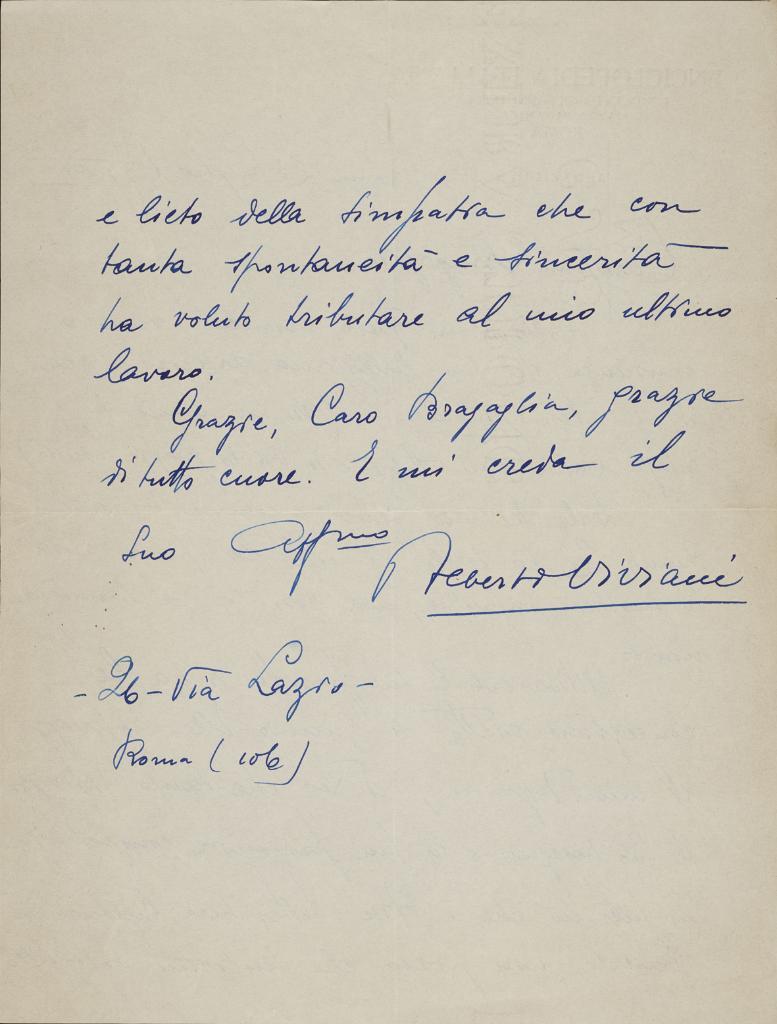 e lieto della simpatia che con
tanta spontaneità e sincerità
ha voluto tributare al mio ultimo
lavoro.
Grazie, Caro Bragaglia, grazie
di tutto cuore. E mi creda il
Suo Affmo
Alberto Viviani
- 26 - Via Lazio -
Roma (106)